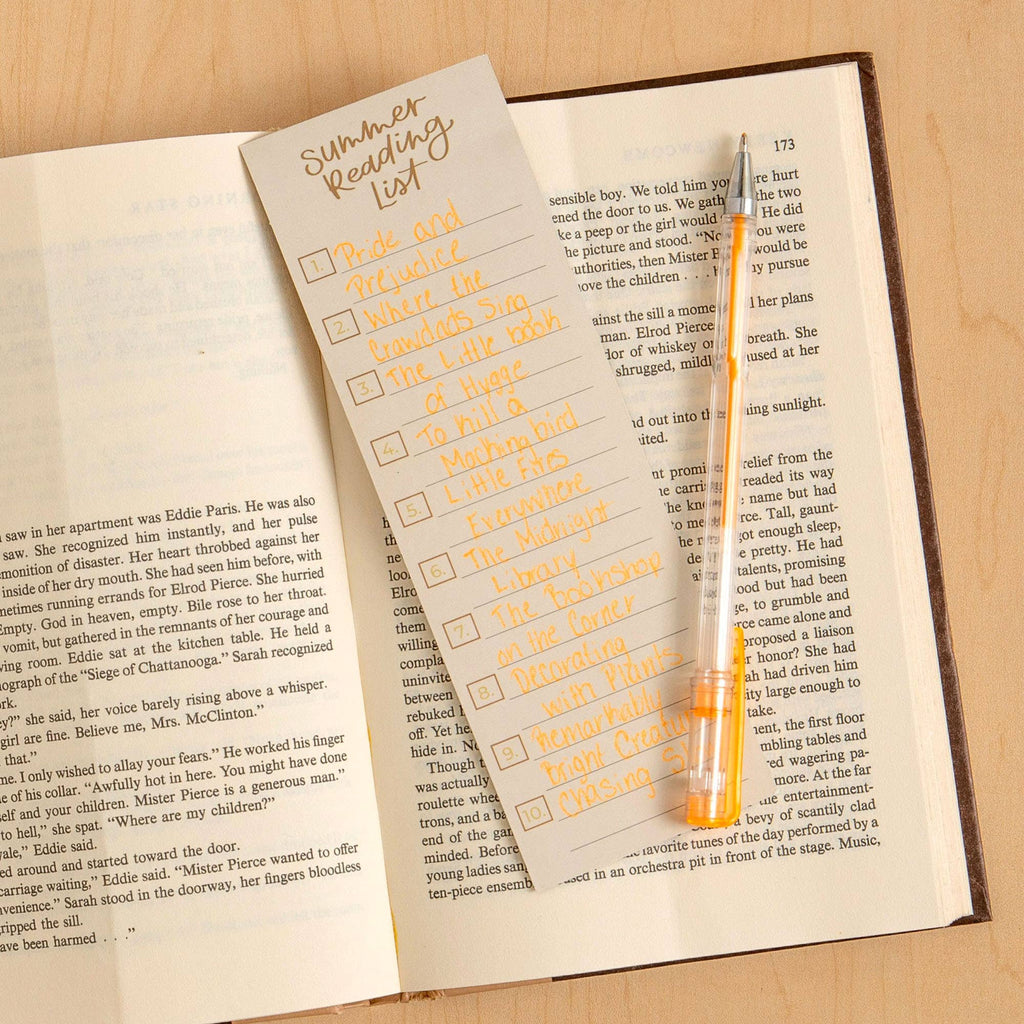 Summer
Reading
List
1. Pride and
Prejudice
2. Where the
Crawdads Sing
3. The Little book
of Hygge
4. To kill a
Mockingbird
5. Little Fires
Everywhere
6. The Midnight
Library
7. The Bookshop
on the Corner
8. Decorating
with Plants
9. Remarkably
Bright
10. Chasing
saw in her apartment was Eddie Paris. He was also
saw. She recognized him instantly, and her pulse
of disaster. Her heart throbbed against her
inside of her dry mouth. She had seen him before, with
running errands for Elrod Pierce. She hurried
Empty. God in heaven, empty. Bile rose to her throat.
vomit, but gathered in the remnants of her courage and
room. Eddie sat at the kitchen table. He held a
of the “Siege of Chattanooga.” Sarah recognized
she said, her voice barely rising above a whisper.
girl are fine. Believe me, Mrs. McClinton.”
that.”
I only wished to allay your fears.” He worked his finger
of his collar. “Awfully hot in here. You might have done
and your children. Mister Pierce is a generous man.”
to hell,” she spat. “Where are my children?”
Eddie said.
around and started toward the door.
waiting,” Eddie said. “Mister Pierce wanted to offer
Sarah stood in the doorway, her fingers bloodless
the sill.
have been harmed . . .”
173
sensible boy. We told him hurt
the door to us. We the two
a peep or the girl would He did
the picture and stood. you were
then Mister would be
the children . . . pursue
the sill a her plans
man. Elrod Pierce
of whiskey breath. She
shrugged, at her
out into sunlight.
relief from the
readed its way
name but had
Tall, gaunt-
got enough sleep,
pretty. He had
talents, promising
but had been
to grumble and
came alone and
proposed a liaison
honor? She had
had driven him
large enough to
take.
the first floor
tables and
wagering pa-
more. At the far
the entertainment-
a bevy of scantily clad
tunes of the day performed by a
in an orchestra pit in front of the stage. Music,
come
them
willing
between
rebuked
off. Yet he
hide in.
Though
was actually
roulette
trons, and a
end of the
minded. Before
young ladies
ten-piece